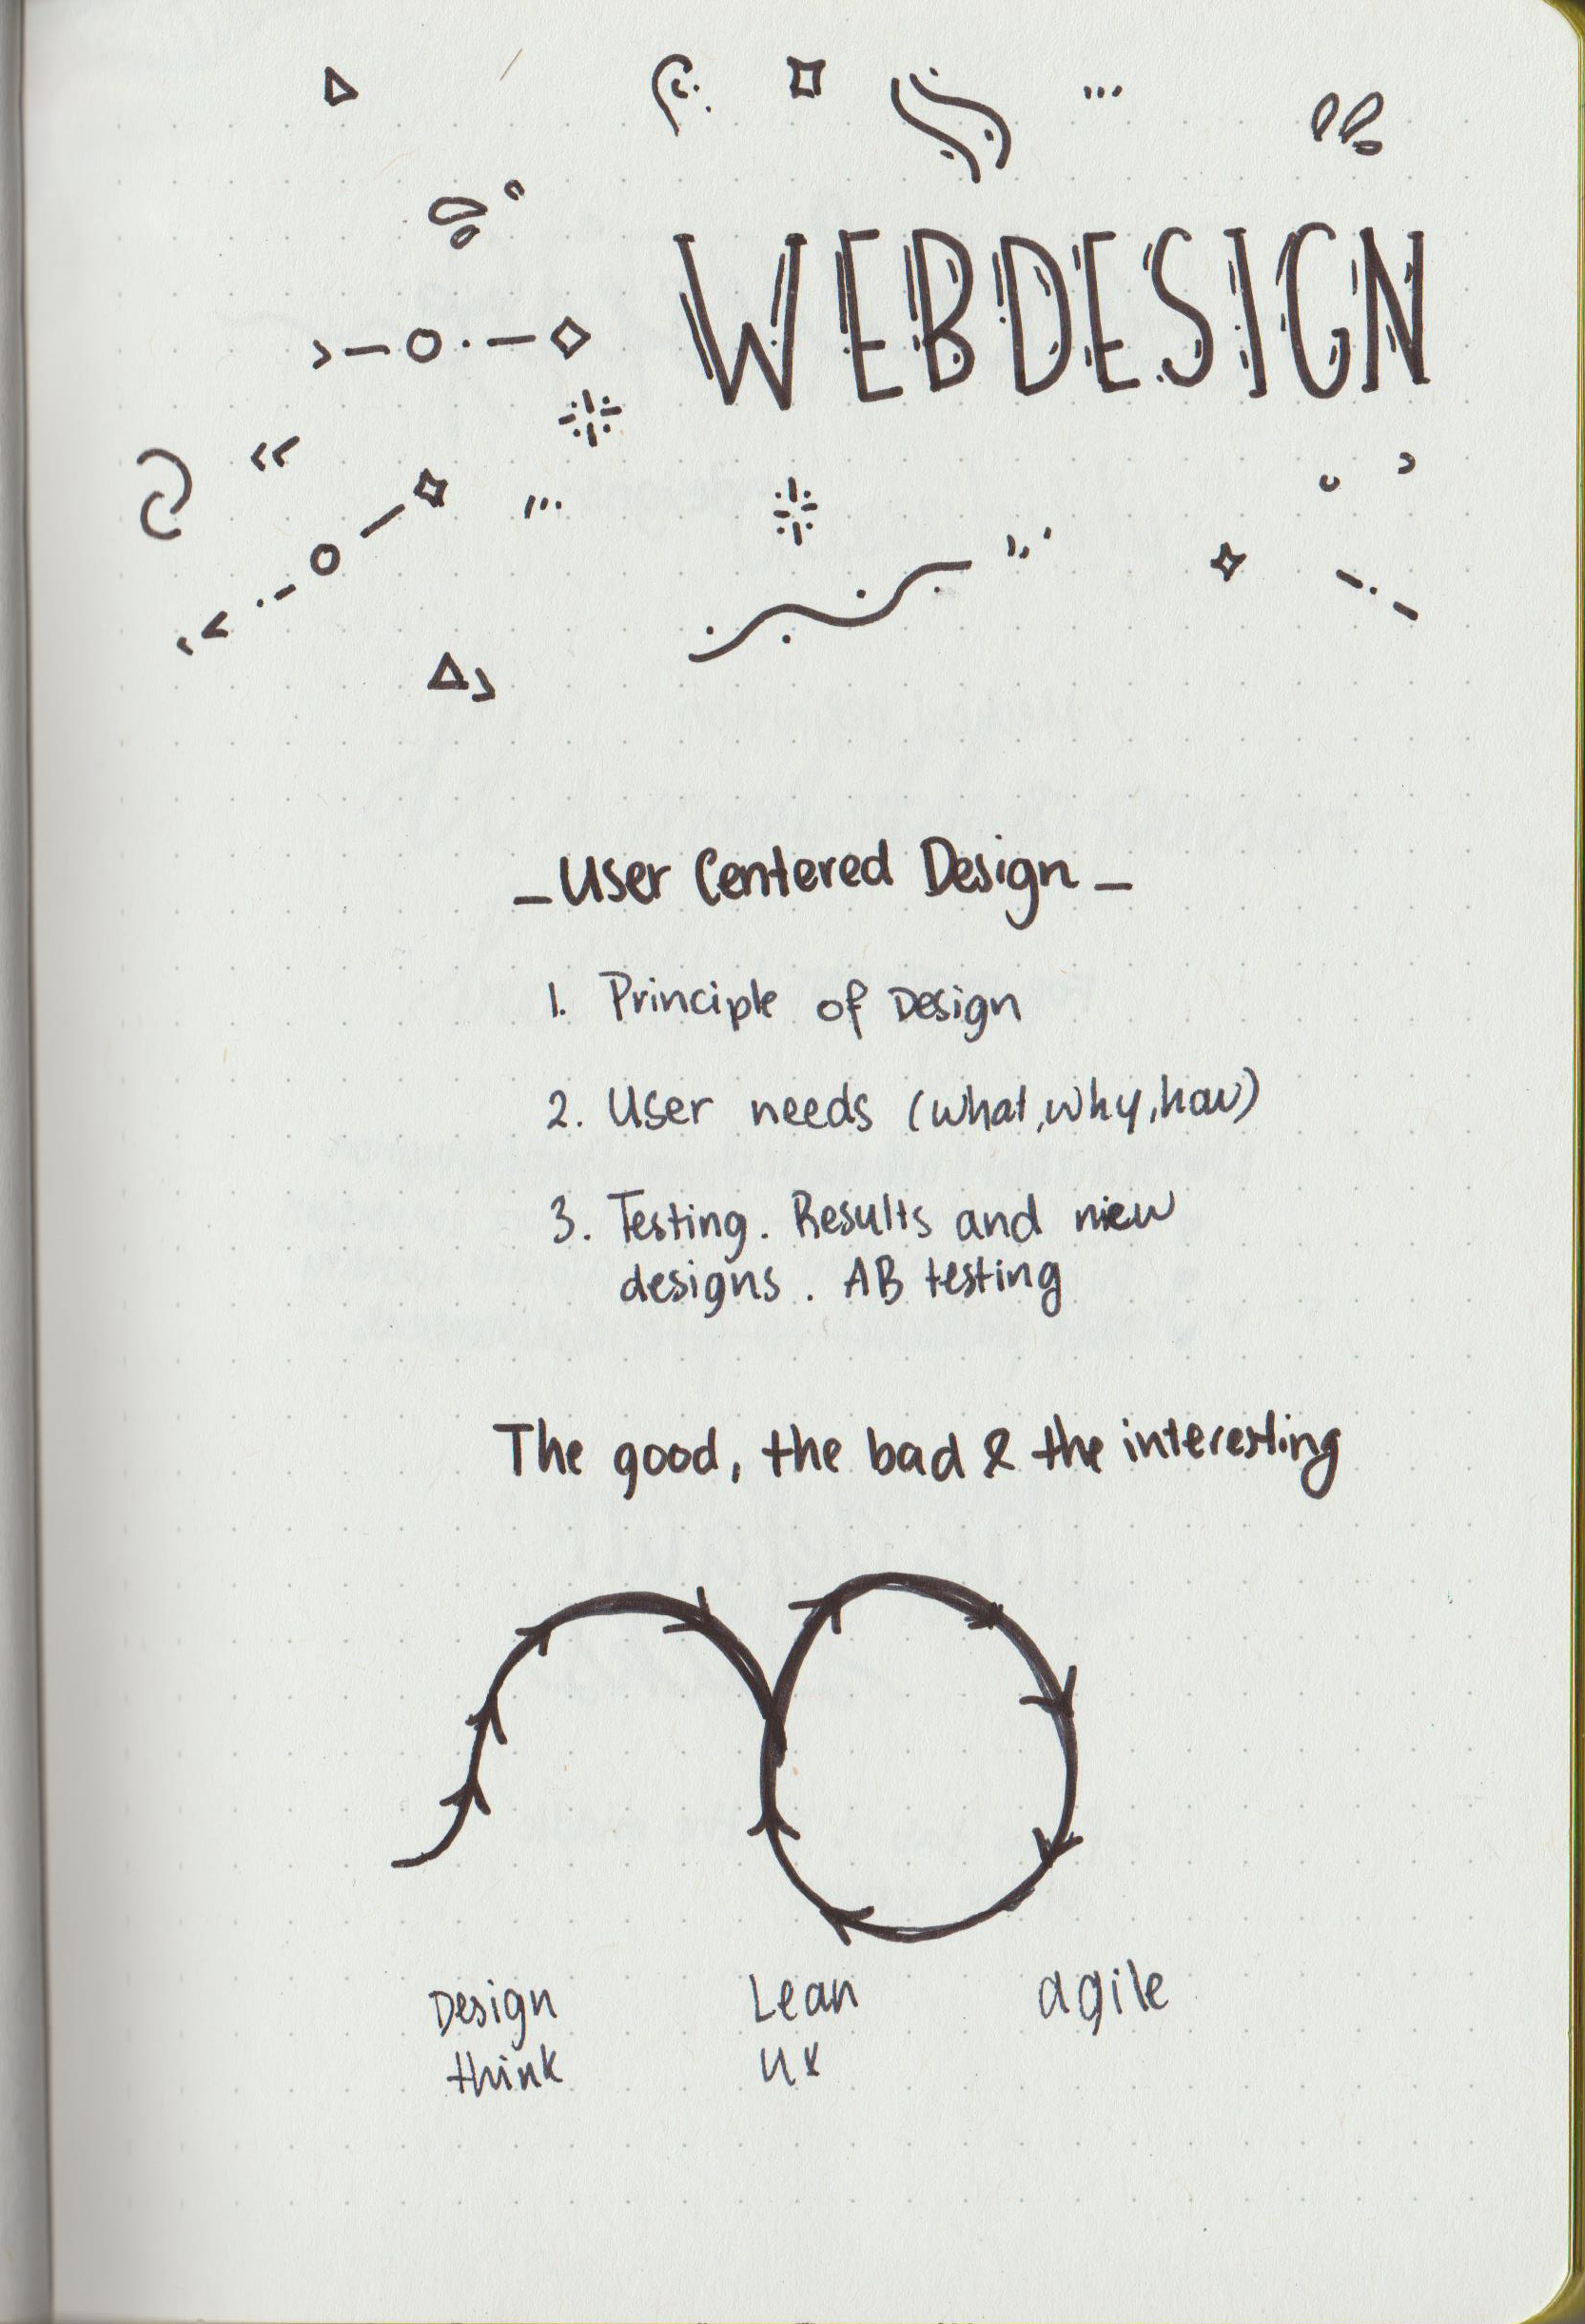 WEBDESIGN
_ User Centered Design _
1. Principle of Design
2. User needs (what, why, how)
3. Testing. Results and new
designs. AB testing
The good, the bad & the interesting
Design Lean agile
think UX